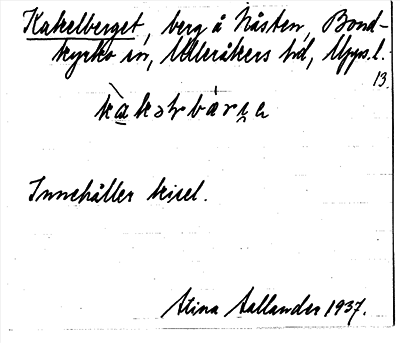 Kakelberget, berg å Nåsten, Bond-
kyrko sn, Ulleråkers hd, Upps. l.
13.
Innehåller kisel.
Stina Aallander 1937.